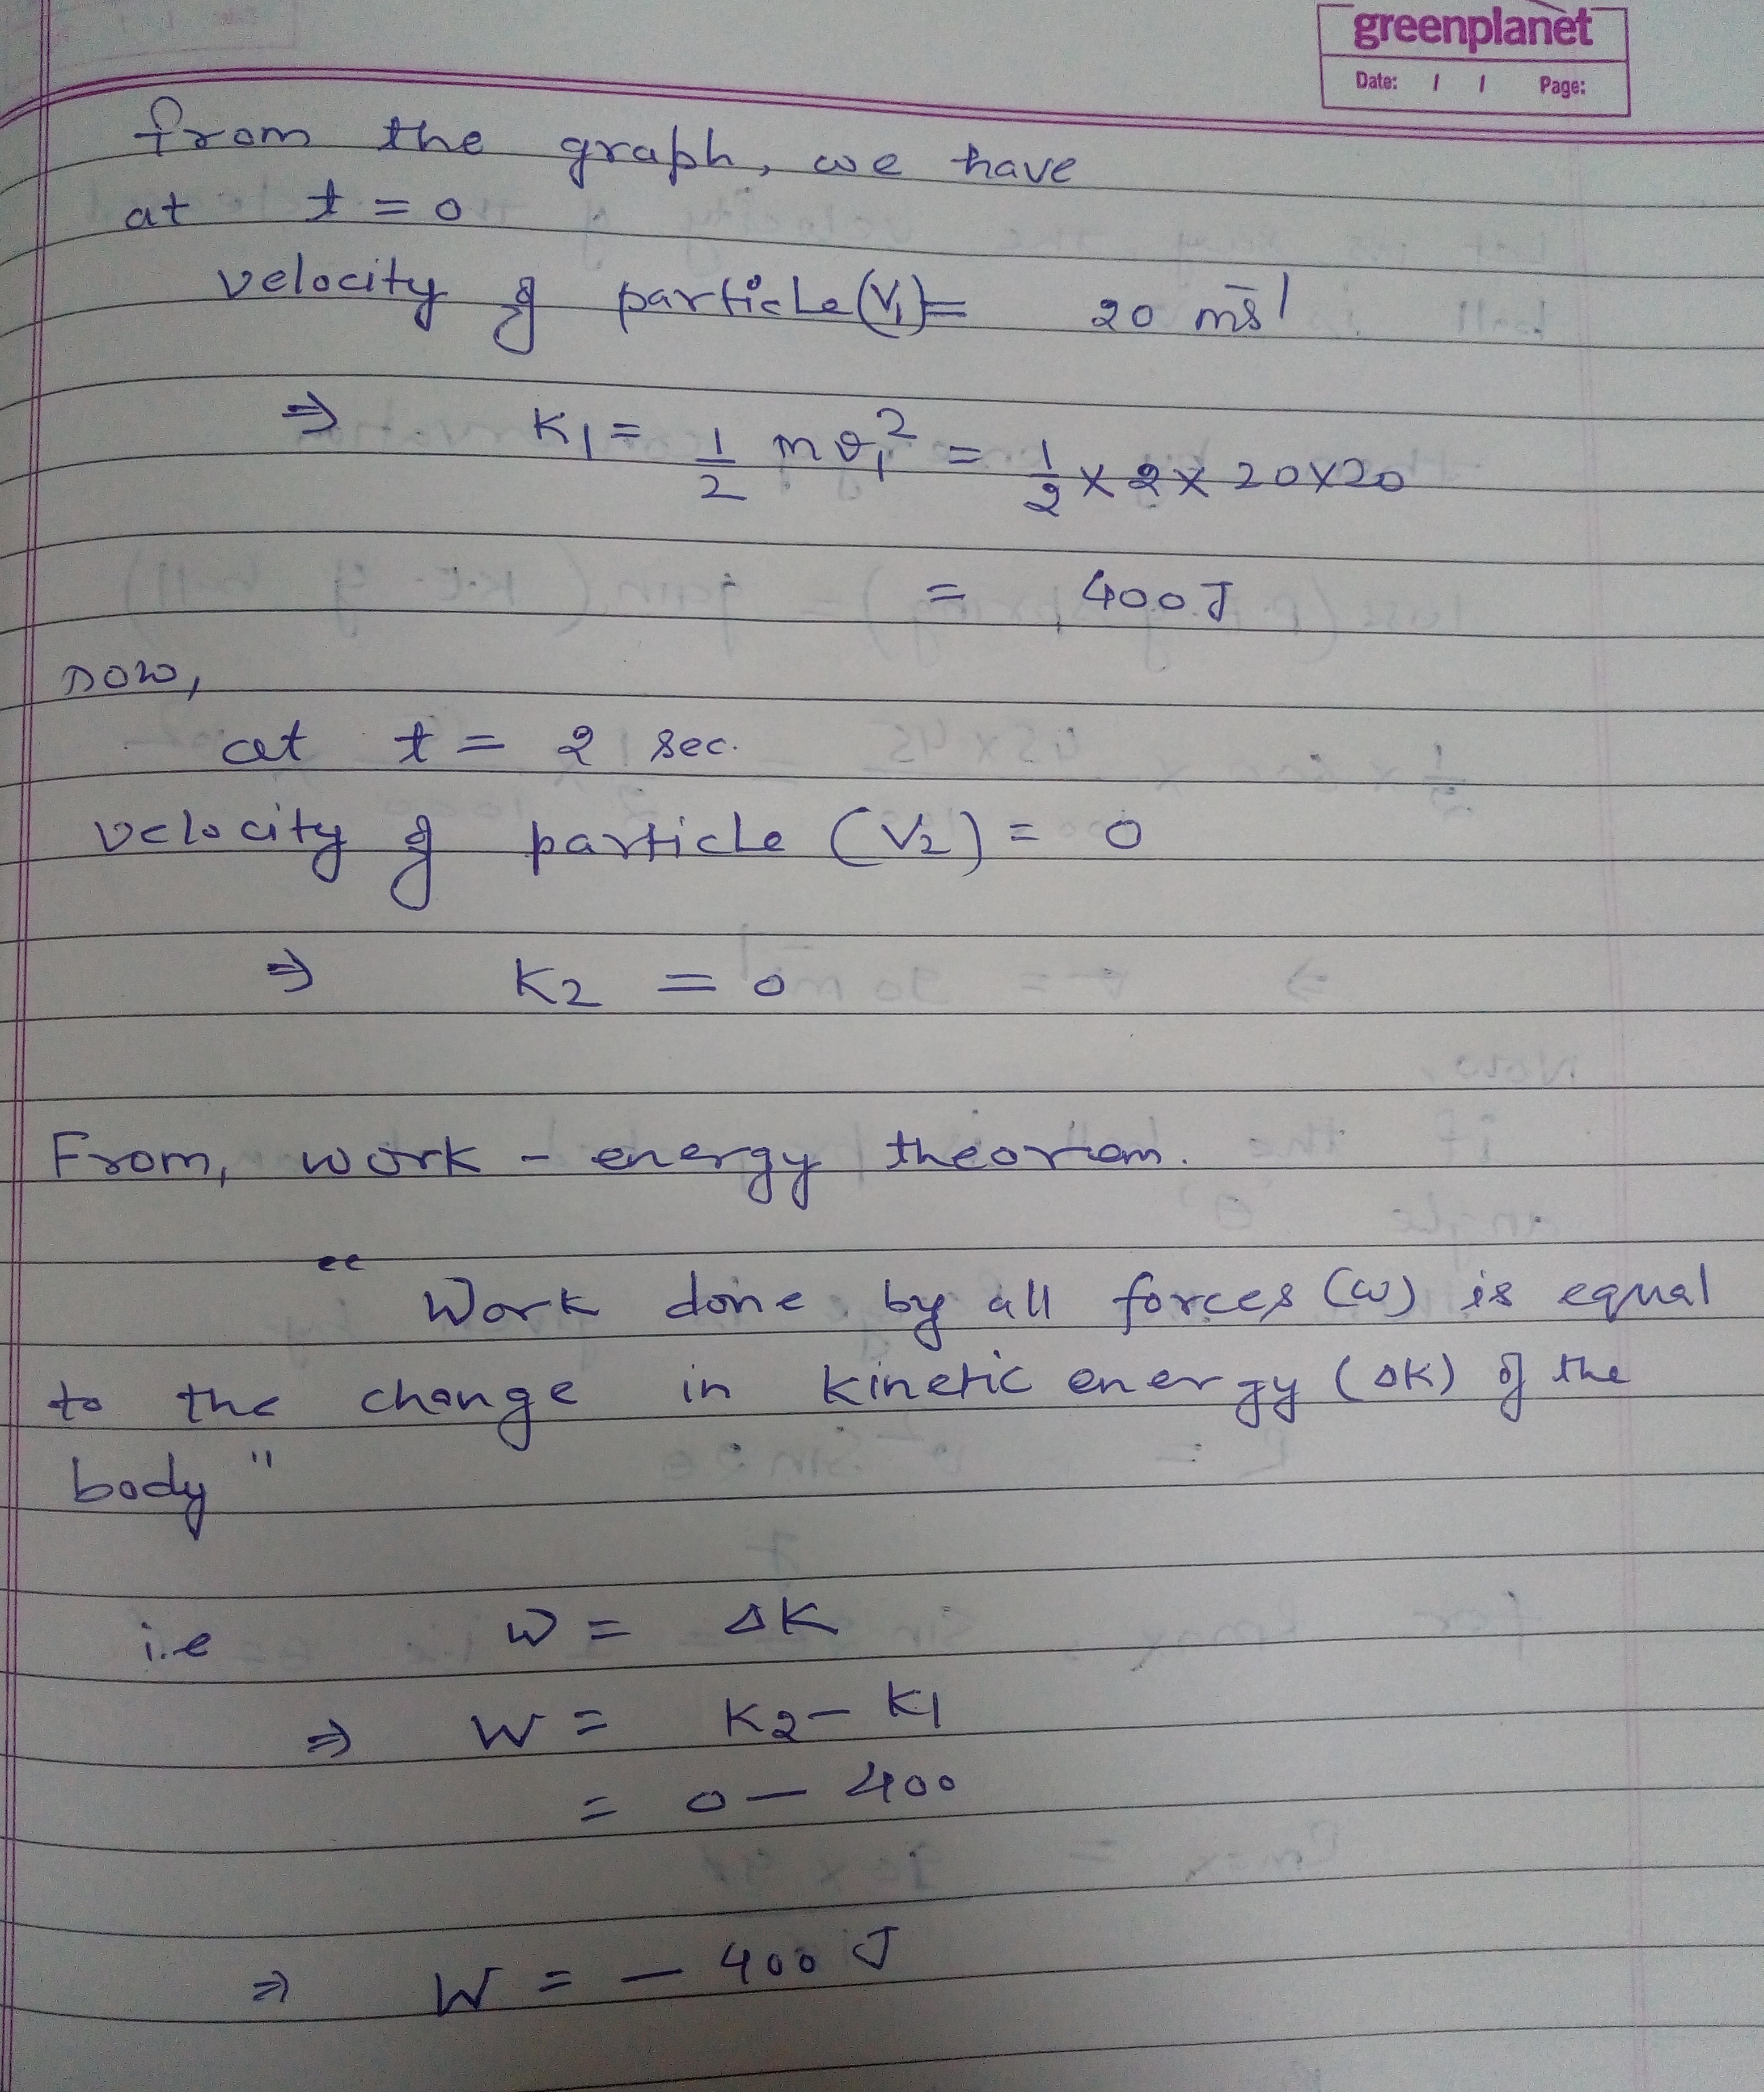 greenplanet
Date: / / Page:
from the graph, we have
at t = 0
velocity of particle (V₁) = 20 ms⁻¹
⇒ K₁ = 1/2 m v₁² = 1/2 × 2 × 20 × 20
= 400 J
now,
at t = 2 sec.
velocity of particle (V₂) = 0
⇒ K₂ = 0
From, work - energy theoriem.
“ Work done by all forces (W) is equal
to the change in kinetic energy (ΔK) of the
body "
i.e W = ΔK
⇒ W = K₂ - K₁
= 0 - 400
⇒ W = - 400 J